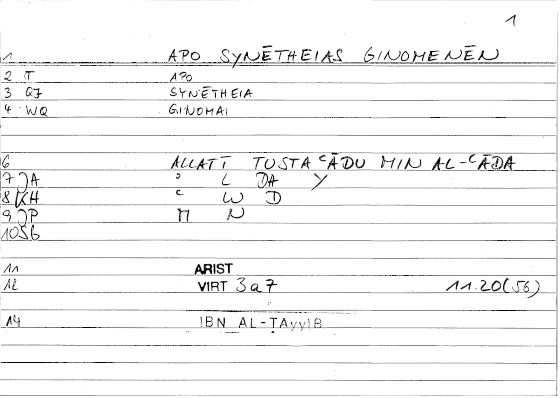 1
1 APO SYNĒTHEIAS GINOMENĒN
2 T APO
3 Q7 SYNĒTHEIA
4 WQ GINOMAI
6 ALLATĪ TUSTAʿĀDU MIN AL-ʿĀDA
7 JA ʾ L DA Y
8 KH ʿ W D
9 JP M N
10 SG
11 ARIST
12 VIRT 3a7 11.20(56)
14 IBN AL-ṬAyyIB